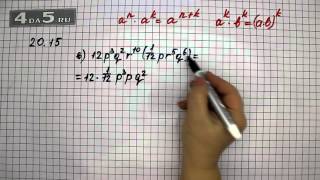 4DA5.RU
aⁿ · aᵏ = aⁿ⁺ᵏ aᵏ · bᵏ = (a·b)ᵏ
20.15
в) 12p³q²r¹⁰(1/12 pr⁵q⁶)=
= 12 · 1/12 p³pq²